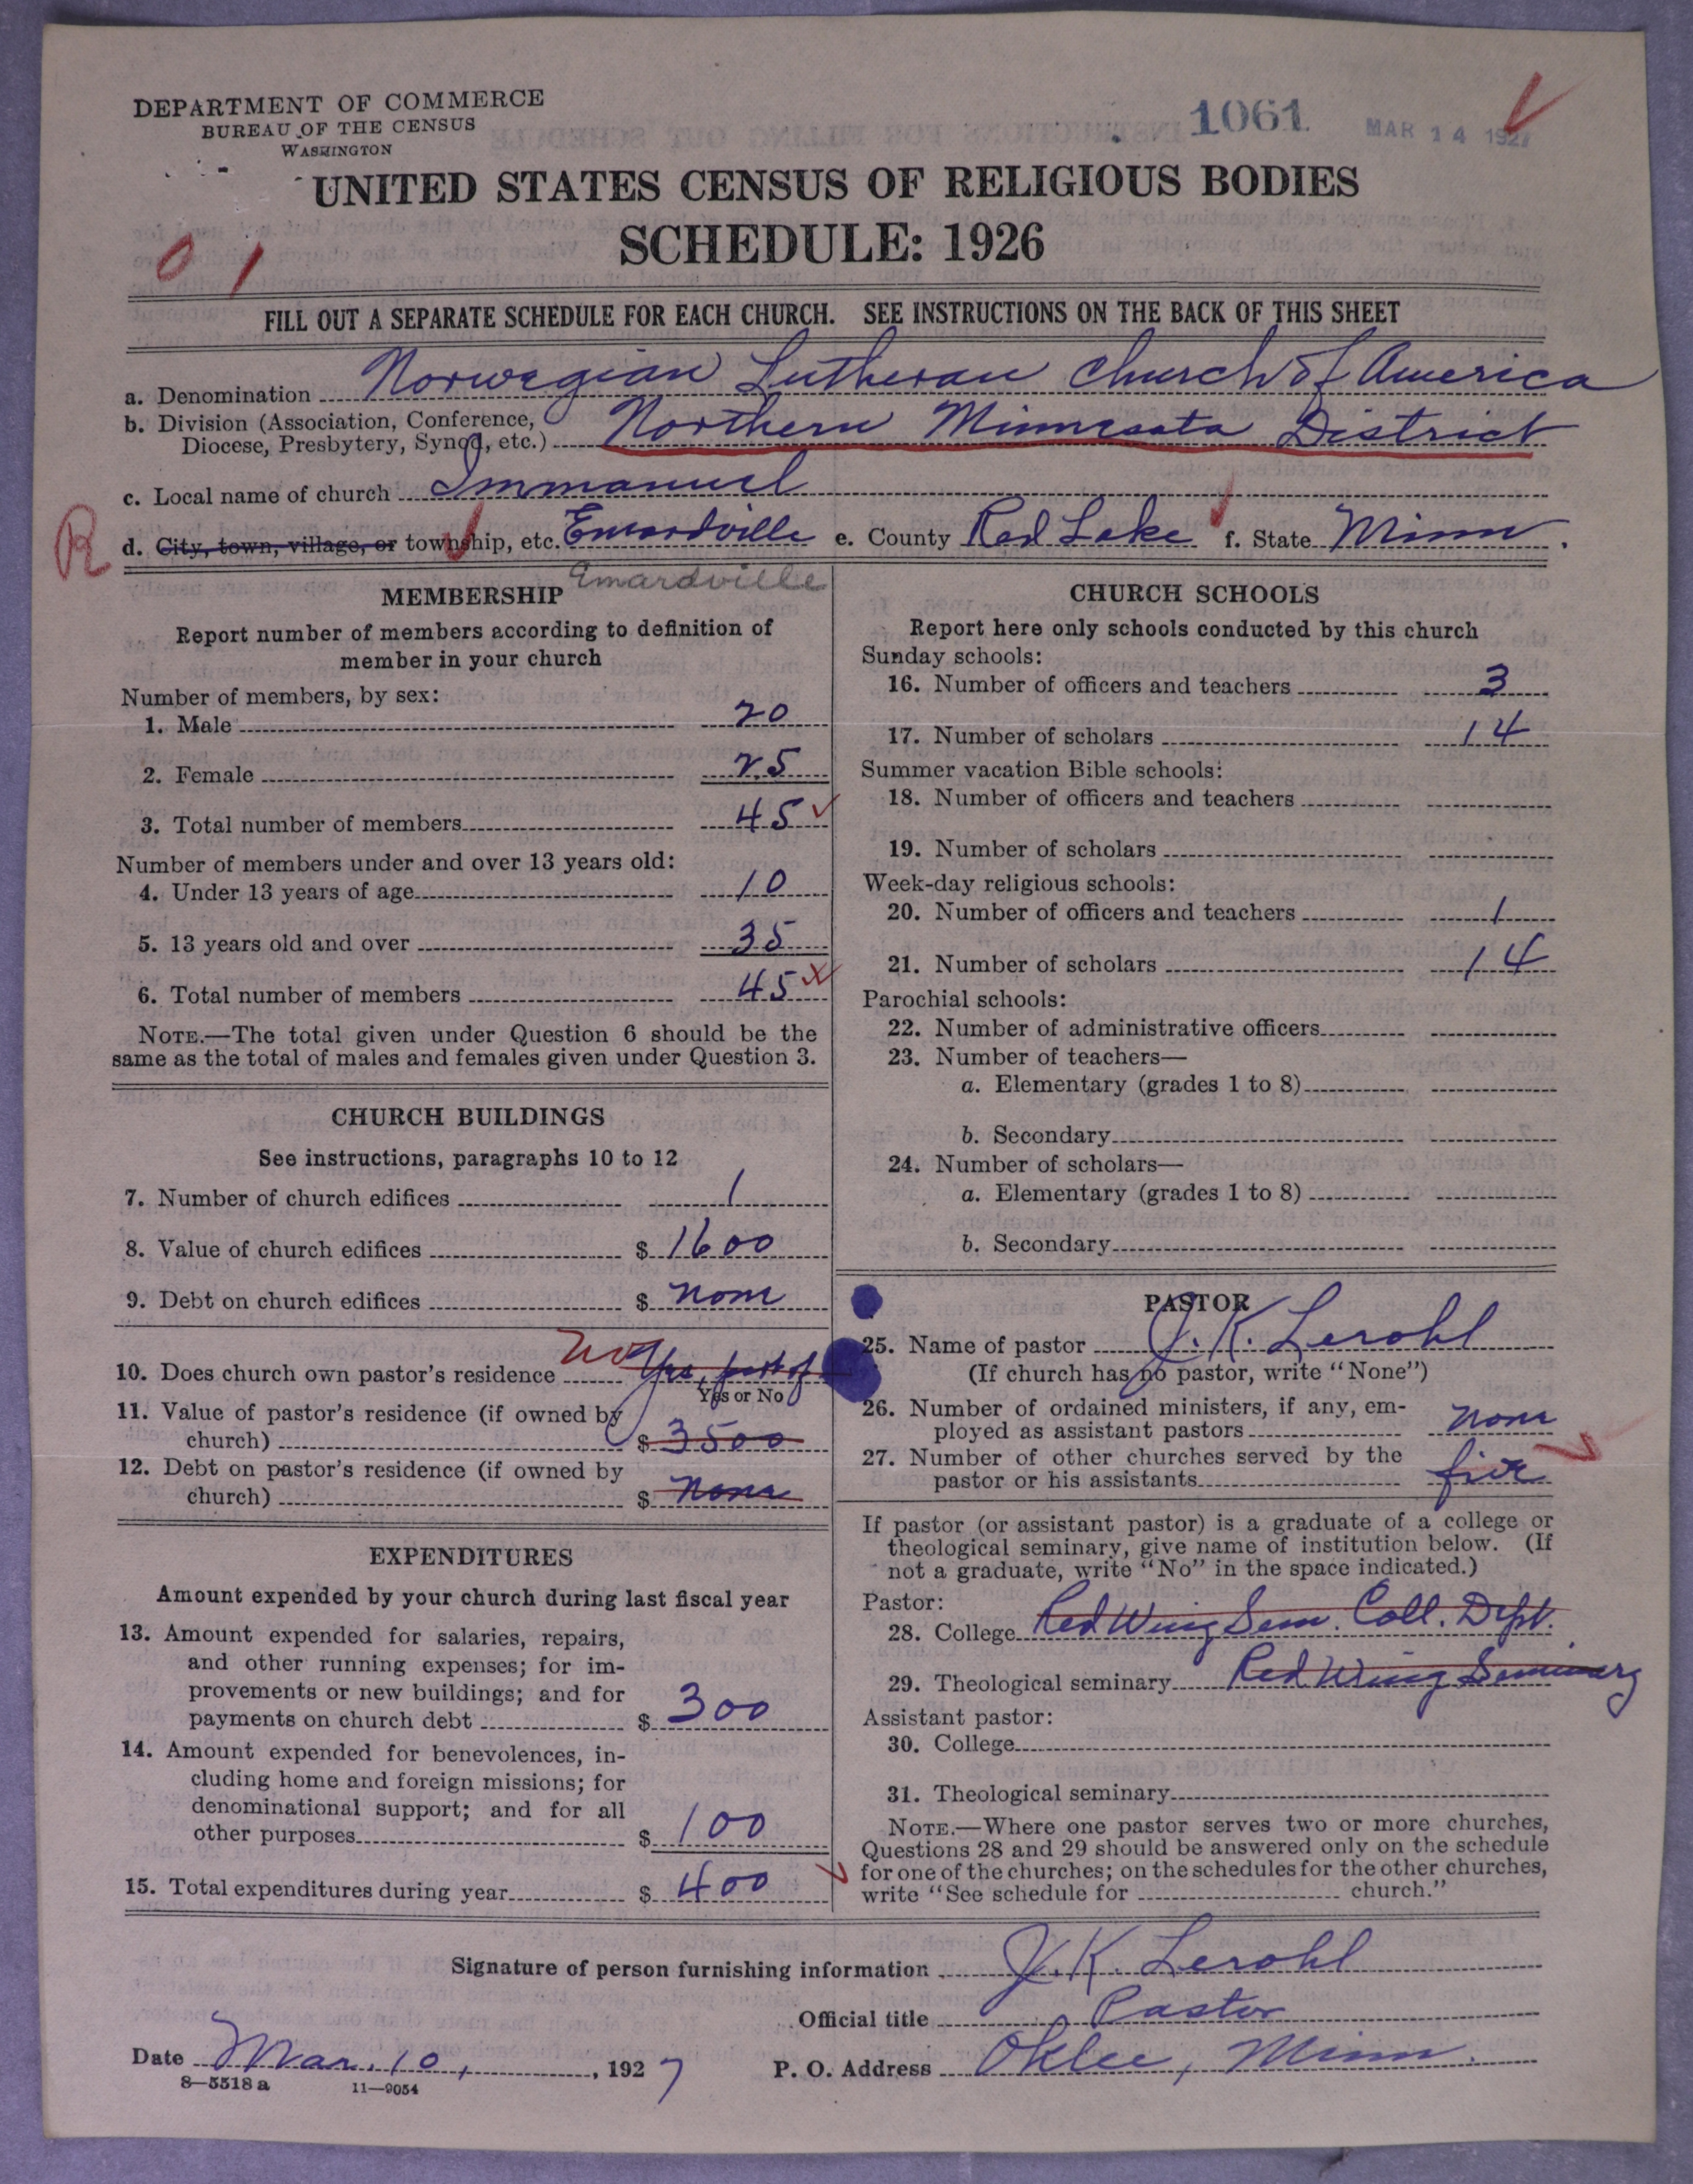 DEPARTMENT OF COMMERCE
BUREAU OF THE CENSUS
WASHINGTON
1061
MAR 14 1927
UNITED STATES CENSUS OF RELIGIOUS BODIES
SCHEDULE: 1926
0 1
FILL OUT A SEPARATE SCHEDULE FOR EACH CHURCH. SEE INSTRUCTIONS ON THE BACK OF THIS SHEET
a. Denomination Norwegian Lutheran Church of America
b. Division (Association, Conference,
Diocese, Presbytery, Synod, etc.) Northern Minnesota District
c. Local name of church Immanuel
R
d. City, town, village, or township, etc. Emardville e. County Red Lake f. State Minn.
Emardville
MEMBERSHIP
Report number of members according to definition of
member in your church
Number of members, by sex:
1. Male 20
2. Female 25
3. Total number of members 45
Number of members under and over 13 years old:
4. Under 13 years of age 10
5. 13 years old and over 35
6. Total number of members 45
NOTE.—The total given under Question 6 should be the
same as the total of males and females given under Question 3.
CHURCH BUILDINGS
See instructions, paragraphs 10 to 12
7. Number of church edifices 1
8. Value of church edifices $ 1600
9. Debt on church edifices $ none
10. Does church own pastor's residence No Yes, part of
Yes or No
11. Value of pastor's residence (if owned by
church) $ 3500
12. Debt on pastor's residence (if owned by
church) $ None
EXPENDITURES
Amount expended by your church during last fiscal year
13. Amount expended for salaries, repairs,
and other running expenses; for im-
provements or new buildings; and for
payments on church debt $ 300
14. Amount expended for benevolences, in-
cluding home and foreign missions; for
denominational support; and for all
other purposes $ 100
15. Total expenditures during year $ 400
CHURCH SCHOOLS
Report here only schools conducted by this church
Sunday schools:
16. Number of officers and teachers 3
17. Number of scholars 14
Summer vacation Bible schools:
18. Number of officers and teachers
19. Number of scholars
Week-day religious schools:
20. Number of officers and teachers 1
21. Number of scholars 14
Parochial schools:
22. Number of administrative officers
23. Number of teachers—
a. Elementary (grades 1 to 8)
b. Secondary
24. Number of scholars—
a. Elementary (grades 1 to 8)
b. Secondary
PASTOR
25. Name of pastor J. K. Lerohl
(If church has no pastor, write "None")
26. Number of ordained ministers, if any, em-
ployed as assistant pastors none
27. Number of other churches served by the
pastor or his assistants five
If pastor (or assistant pastor) is a graduate of a college or
theological seminary, give name of institution below. (If
not a graduate, write "No" in the space indicated.)
Pastor:
28. College Red Wing Sem. Coll. Dept.
29. Theological seminary Red Wing Seminary
Assistant pastor:
30. College
31. Theological seminary
NOTE.—Where one pastor serves two or more churches,
Questions 28 and 29 should be answered only on the schedule
for one of the churches; on the schedules for the other churches,
write "See schedule for church."
Signature of person furnishing information J. K. Lerohl
Official title Pastor
Date Mar. 10, 1927 P. O. Address Oklee, Minn.
8—5518 a 11—9054